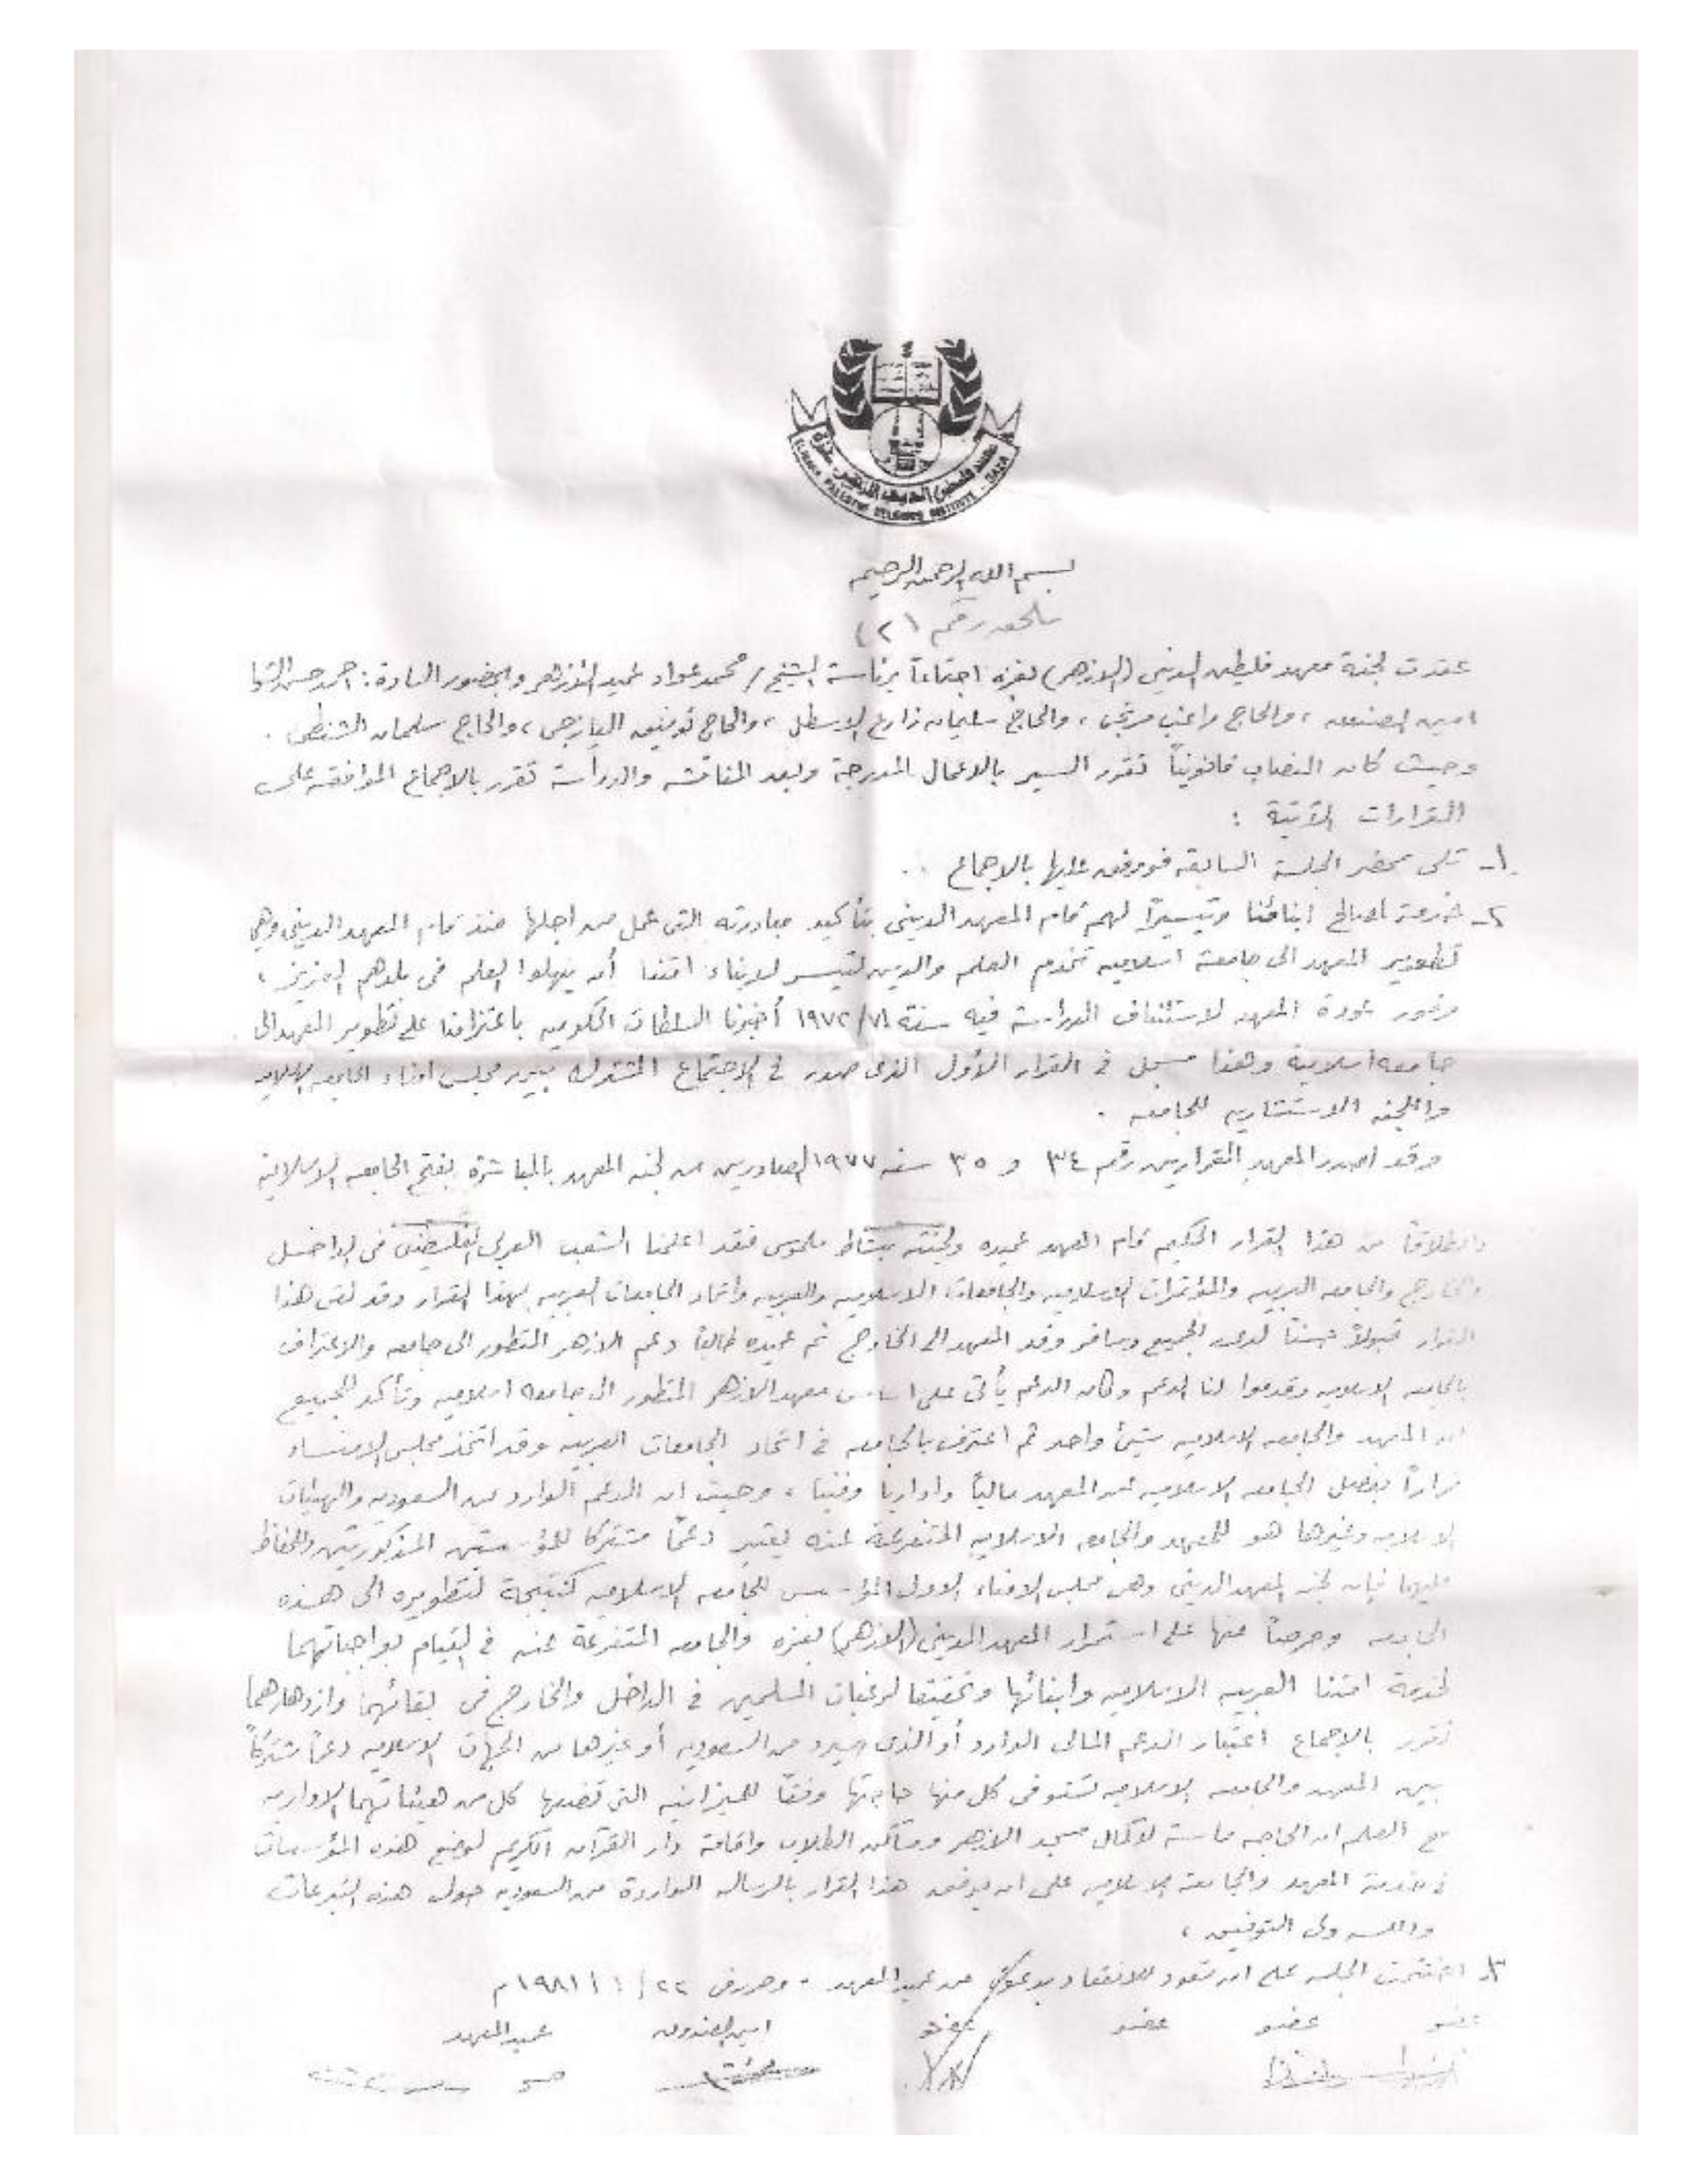 معهد فلسطين الديني الازهر - غزة
PALESTINE RELIGIOUS INSTITUTE - GAZA
بسم الله الرحمن الرحيم
ملحق رقم (٢)
عقدت لجنة معهد فلسطين الديني (الازهر) بغزه اجتماعاً برئاسة الشيخ / محمد عواد عميد الأزهر وبحضور السادة: احمد حسن الشوا
امين الصندوق، والحاج راغب مرتجى، والحاج سليمان زارع الاسطل، والحاج توفيق اليازجي، والحاج سلمان الشنطي.
وحيث كان النصاب قانونياً تقرر السير بالاعمال المدرجة وبعد المناقشه والدراسة تقرر بالاجماع الموافقه على
القرارات الآتية :
١- تلى محضر الجلسة السابقه فووفق عليها بالاجماع .
٢- خدمة لصالح ابنائنا وتيسيراً لهم قام المعهد الديني بتأكيد مبادرته التى عمل من اجلها منذ قام المعهد الديني وهي
تطوير المعهد الى جامعة اسلاميه تخدم العلم والدين لتيسر لابناء امتنا أن ينهلوا العلم فى بلدهم العزيز ،
وفور عودة المعهد لاستئناف الدراسة فيه سنة ٧١/١٩٧٢ أخبرنا السلطات الحكوميه باعتزامنا على تطوير المعهد الى
جامعه اسلامية وهذا مسجل فى القرار الأول الذى صدر فى الاجتماع المشترك بين مجلس امناء الجامعه الاسلاميه
واللجنه الاستشاريه للجامعه .
وقد اصدر المعهد القرارين رقم ٣٤ و ٣٥ سنه ١٩٧٧ الصادرين من لجنه المعهد بالمباشرة بفتح الجامعه الاسلامية
وانطلاقاً من هذا القرار الحكيم قام المعهد عميده ولجنته بنشاط ملموس فقد اعلمنا الشعب العربى الفلسطيني فى الداخل
والخارج والجامعه العربيه والمؤتمرات الاسلاميه والجامعات الاسلاميه والعربيه واتحاد الجامعات العربيه بهذا القرار وقد لقى هذا
القرار قبولاً حسناً لدى الجميع وسافر وفد المعهد الى الخارج ثم عميده طالباً دعم الازهر المتطور الى جامعه والاعتراف
بالجامعه الاسلاميه وقدموا لنا الدعم وكان الدعم يأتى على اساس معهد الازهر المتطور الى جامعه اسلاميه وتأكد للجميع
ان المعهد والجامعه الاسلاميه شيئ واحد ثم اعترف بالجامعه فى اتحاد الجامعات العربيه وقد اتخذ مجلس الامناء
قراراً بفصل الجامعه الاسلاميه عن المعهد مالياً واداريا وفنيا ، وحيث ان الدعم الوارد من السعوديه والهيئات
الاسلاميه وغيرها هو للمعهد والجامعه الاسلاميه المتفرعة عنه يعتبر دعماً مشتركا للمؤسستين المذكورتين وللحفاظ
عليهما فإن لجنه المعهد الديني وهى مجلس الامناء الاول المؤسس للجامعه الاسلاميه كنتيجة لتطويره الى هذه
الجامعه وحرصاً منها على استمرار المعهد الديني (الازهر) بغزه والجامعه المتفرعة عنه فى القيام بواجباتهما
لخدمة امتنا العربيه الاسلاميه وابنائها وتحقيقا لرغبات المسلمين فى الداخل والخارج فى بقائهما وازدهارهما
تقرر بالاجماع اعتبار الدعم المالى الوارد أو الذى سيرد من السعوديه أو غيرها من الجهات الاسلاميه دعماً مشتركاً
بين المعهد والجامعه الاسلاميه تستوفى كل منها حاجتها وفقاً للميزانيه التى تضعها كل من هيئاتهما الاداريه
مع العلم ان الحاجه ماسة لاكمال مسجد الازهر ومساكن الطلاب واقامة دار القرآن الكريم لوضع هذه المؤسسات
فى خدمة المعهد والجامعة الاسلاميه على ان يرفق هذا القرار بالرساله الواردة من السعوديه حول هذه التبرعات
والله ولى التوفيق ،
٣- اختتمت الجلسه على ان تعود للانعقاد بدعوة من عميد المعهد - وحرر فى ٢٢/١/١٩٨١م
عضو عضو عضو عضو امين الصندوق عميد المعهد